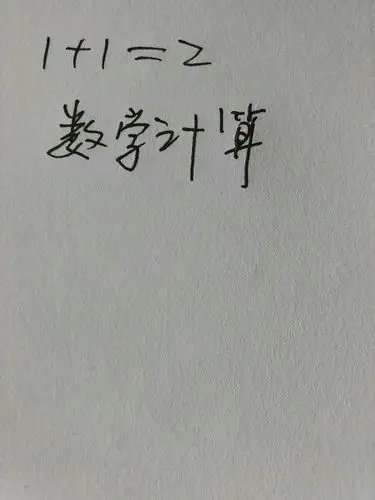 1+1=2
数学计算